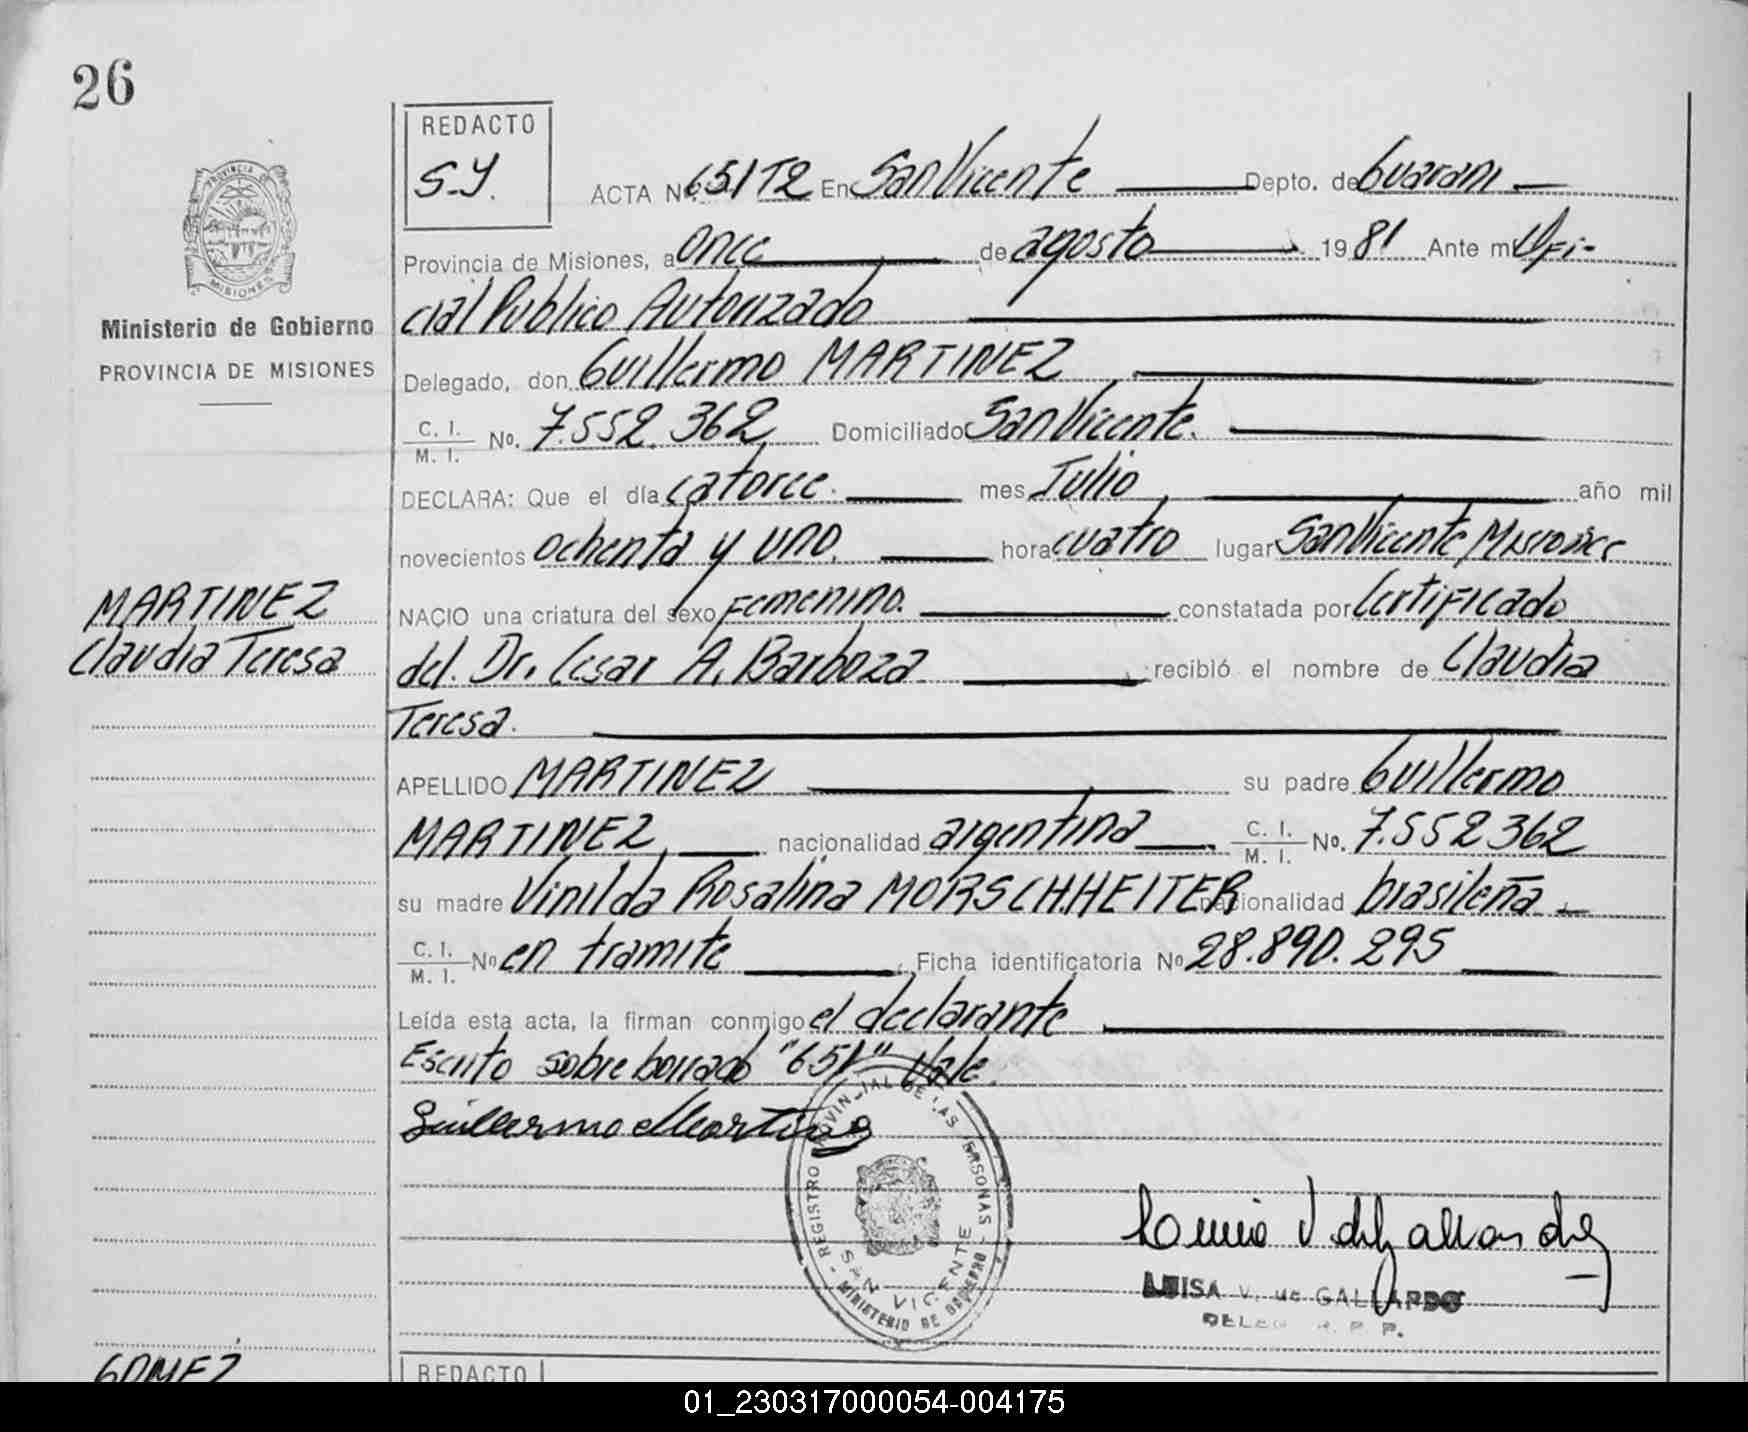 26
REDACTO
S.Y.
PROVINCIA DE
MISIONES
Ministerio de Gobierno
PROVINCIA DE MISIONES
ACTA Nº 651T2 En San Vicente Depto. de Guarani
Provincia de Misiones, a once de agosto 1981 Ante mi Ofi-
cial Publico Autorizado
Delegado, don Guillermo MARTINEZ
C. I.
M. I. No. 7.552.362 Domiciliado San Vicente.
DECLARA: Que el día catorce. mes Julio año mil
novecientos ochenta y uno. hora cuatro lugar San Vicente Misiones
MARTINEZ
Claudia Teresa
NACIO una criatura del sexo Femenino. constatada por Certificado
del. Dr. Cesar A. Barboza recibió el nombre de Claudia
Teresa.
APELLIDO MARTINEZ su padre Guillermo
MARTINEZ, nacionalidad argentina C. I.
M. I. No. 7.552362
su madre Vinilda Rosalina MORSCHHEITER nacionalidad brasileña
C. I.
M. I. No en tramite Ficha identificatoria No 28.890.295
Leída esta acta, la firman conmigo el declarante
Escrito sobre borrado "651" Vale.
Guillermo Martinez
REGISTRO PROVINCIAL DE LAS PERSONAS
SAN VICENTE
MINISTERIO DE GOBIERNO
LUISA V. de GALLARDO
DELEG R. P. P.
GOMEZ
REDACTO
01_230317000054-004175